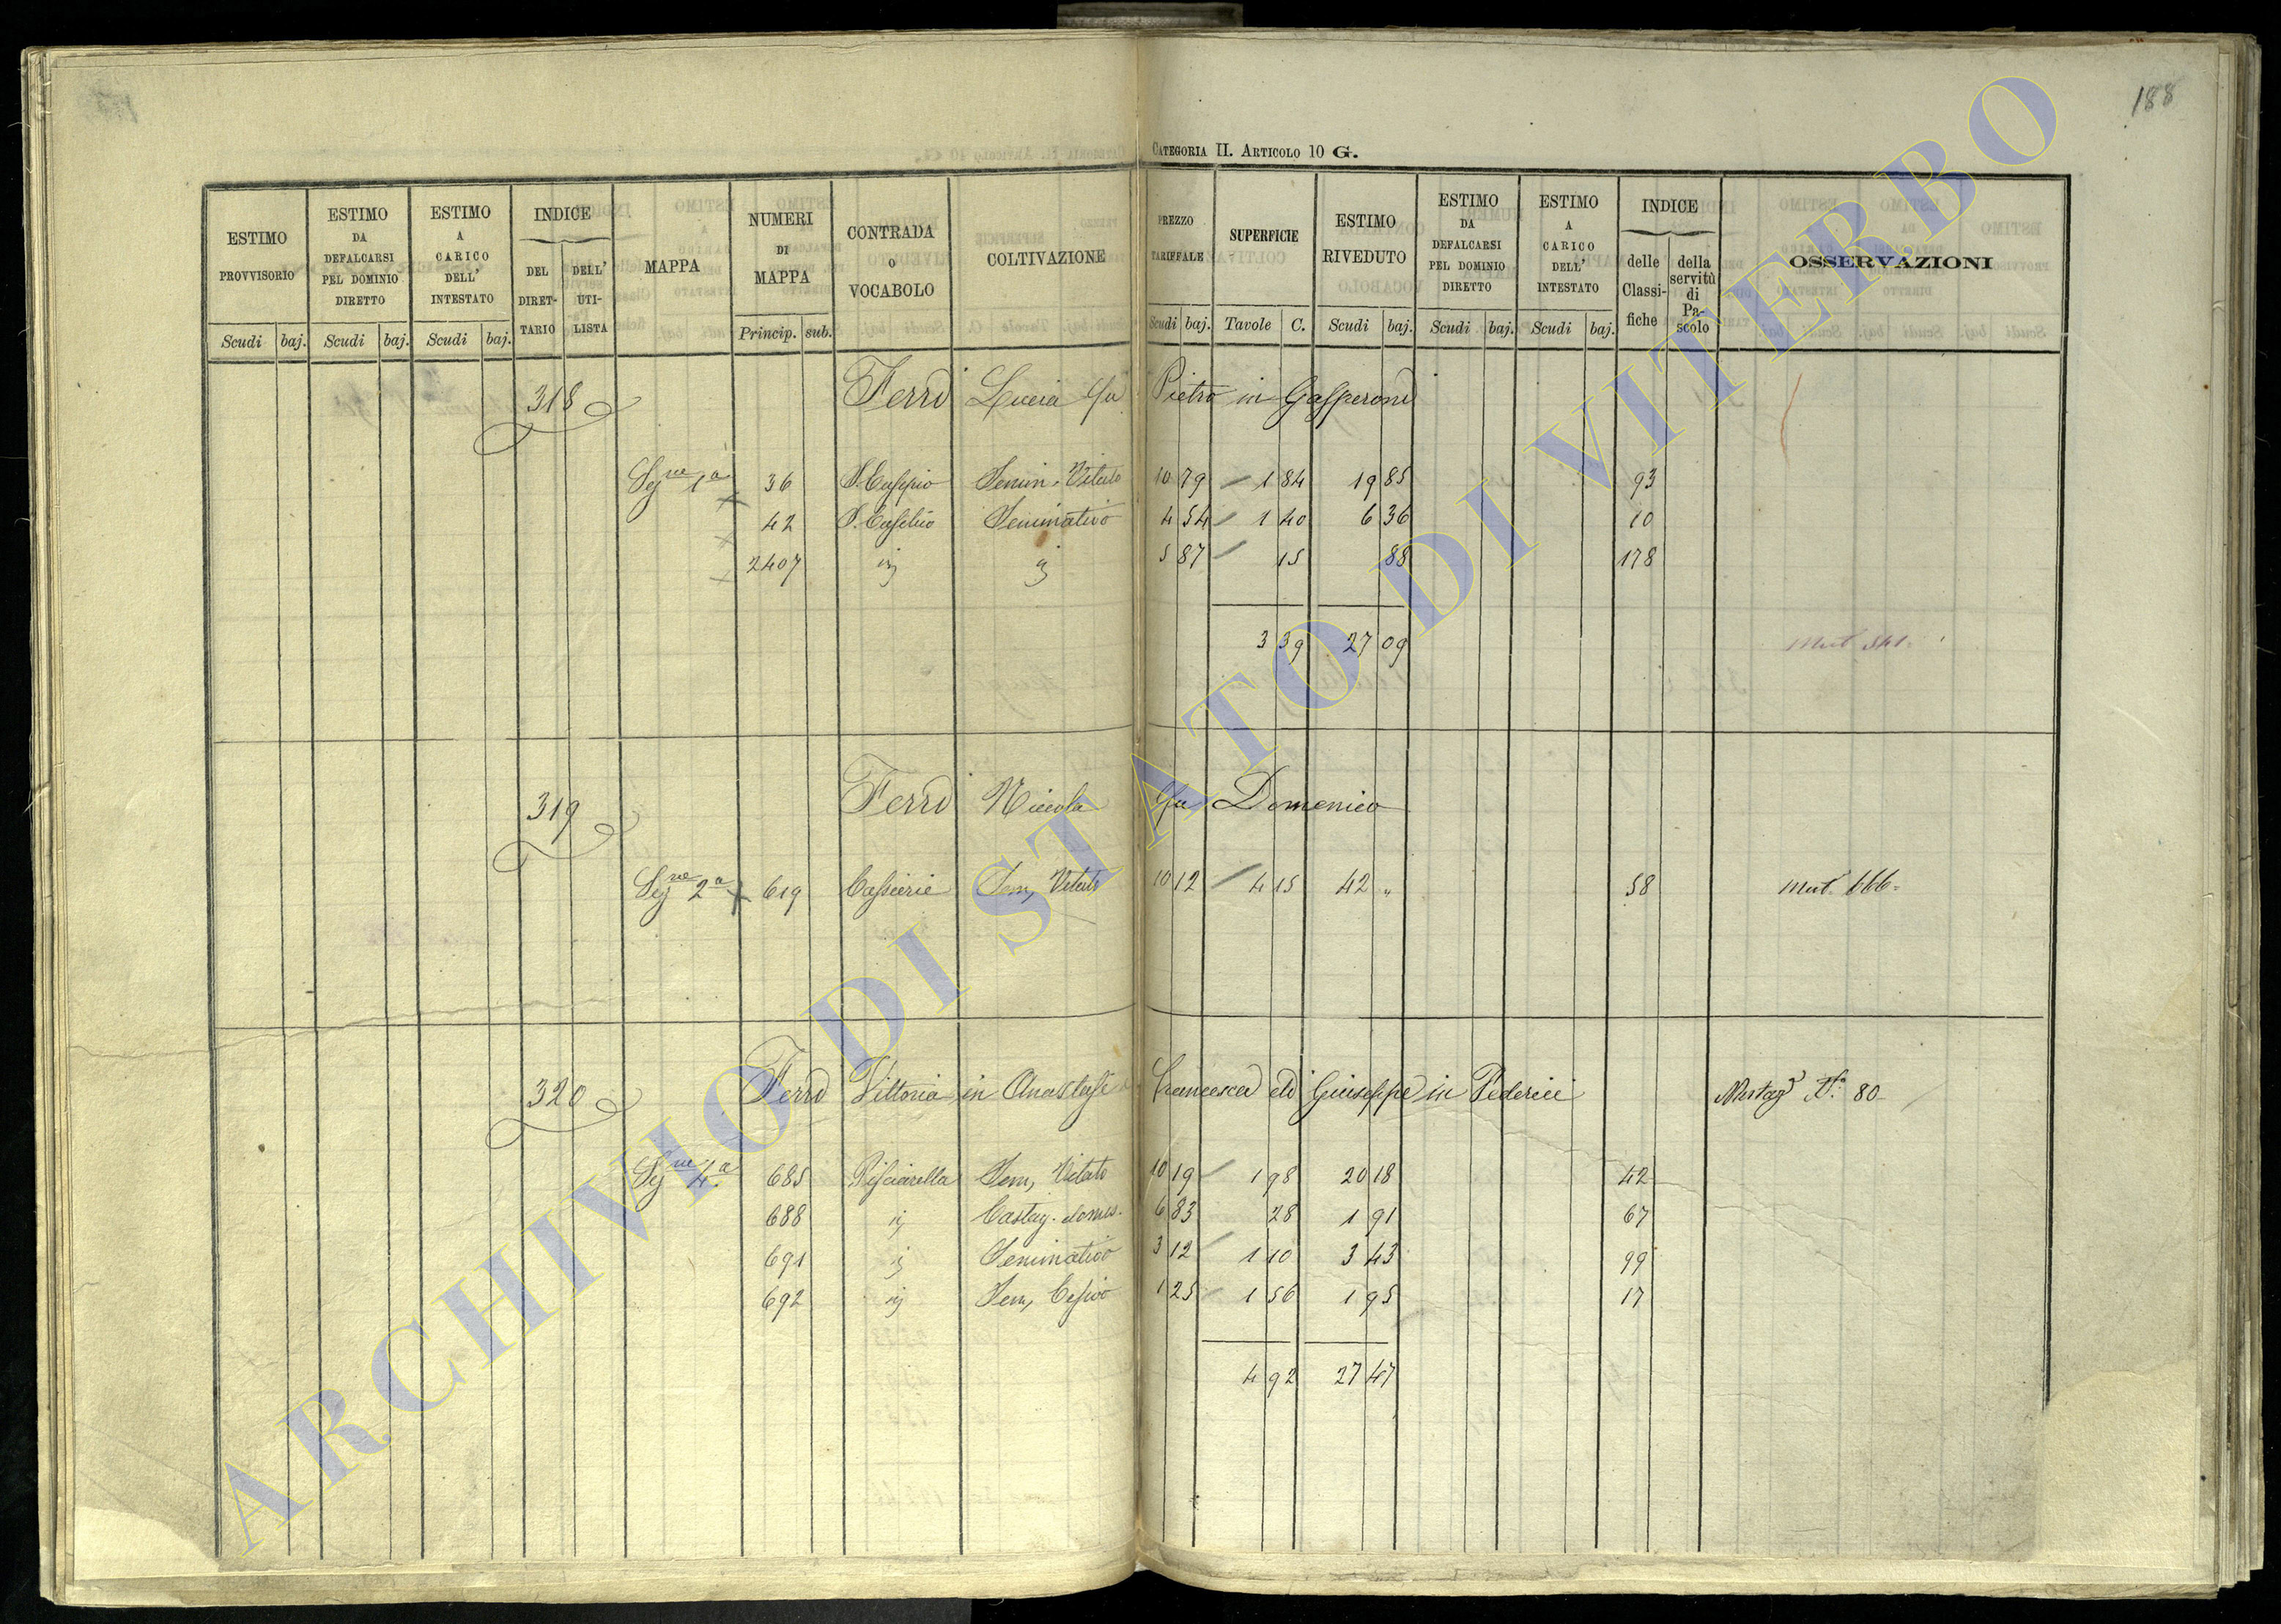 188
CATEGORIA II. ARTICOLO 10 G.
ESTIMO PROVVISORIO
ESTIMO DA DEFALCARSI PEL DOMINIO DIRETTO
ESTIMO A CARICO DELL' INTESTATO
INDICE
DEL DIRET-TARIO
DELL' UTI-LISTA
MAPPA
NUMERI DI MAPPA
CONTRADA O VOCABOLO
COLTIVAZIONE
PREZZO TARIFFALE
SUPERFICIE
ESTIMO RIVEDUTO
ESTIMO DA DEFALCARSI PEL DOMINIO DIRETTO
ESTIMO A CARICO DELL' INTESTATO
INDICE
delle Classi-fiche
della servitù di Pa-scolo
OSSERVAZIONI
Scudi baj. Scudi baj. Scudi baj. Princip. sub. Scudi baj. Tavole C. Scudi baj. Scudi baj. Scudi baj.
318 Ferri Lucia qu Pietro in Gasperoni
Segne 1a 36 Semin. Vitato 10 79 1 84 19 85 93
42 S. Eusebio Seminativo 4 54 1 40 6 36 10
2407 5 87 15 88 178
3 39 27 09 Mut. 541
319 Ferri Nicola qu Domenico
Segne 2a 619 Sem, Vitato 10 12 4 15 42 " 58 Mut. 666
320 Ferri Vittoria in Anastasi Francesca di Giuseppe in Federici N. 80
Segne 4a 685 Pisciarella Sem, Vitato 10 19 1 98 20 18 42
688 Castag. domes. 6 83 28 1 91 67
691 Seminativo 3 12 1 10 3 43 99
692 Sem, Cesivo 1 25 1 56 1 95 17
4 92 27 47
ARCHIVIO DI STATO DI VITERBO